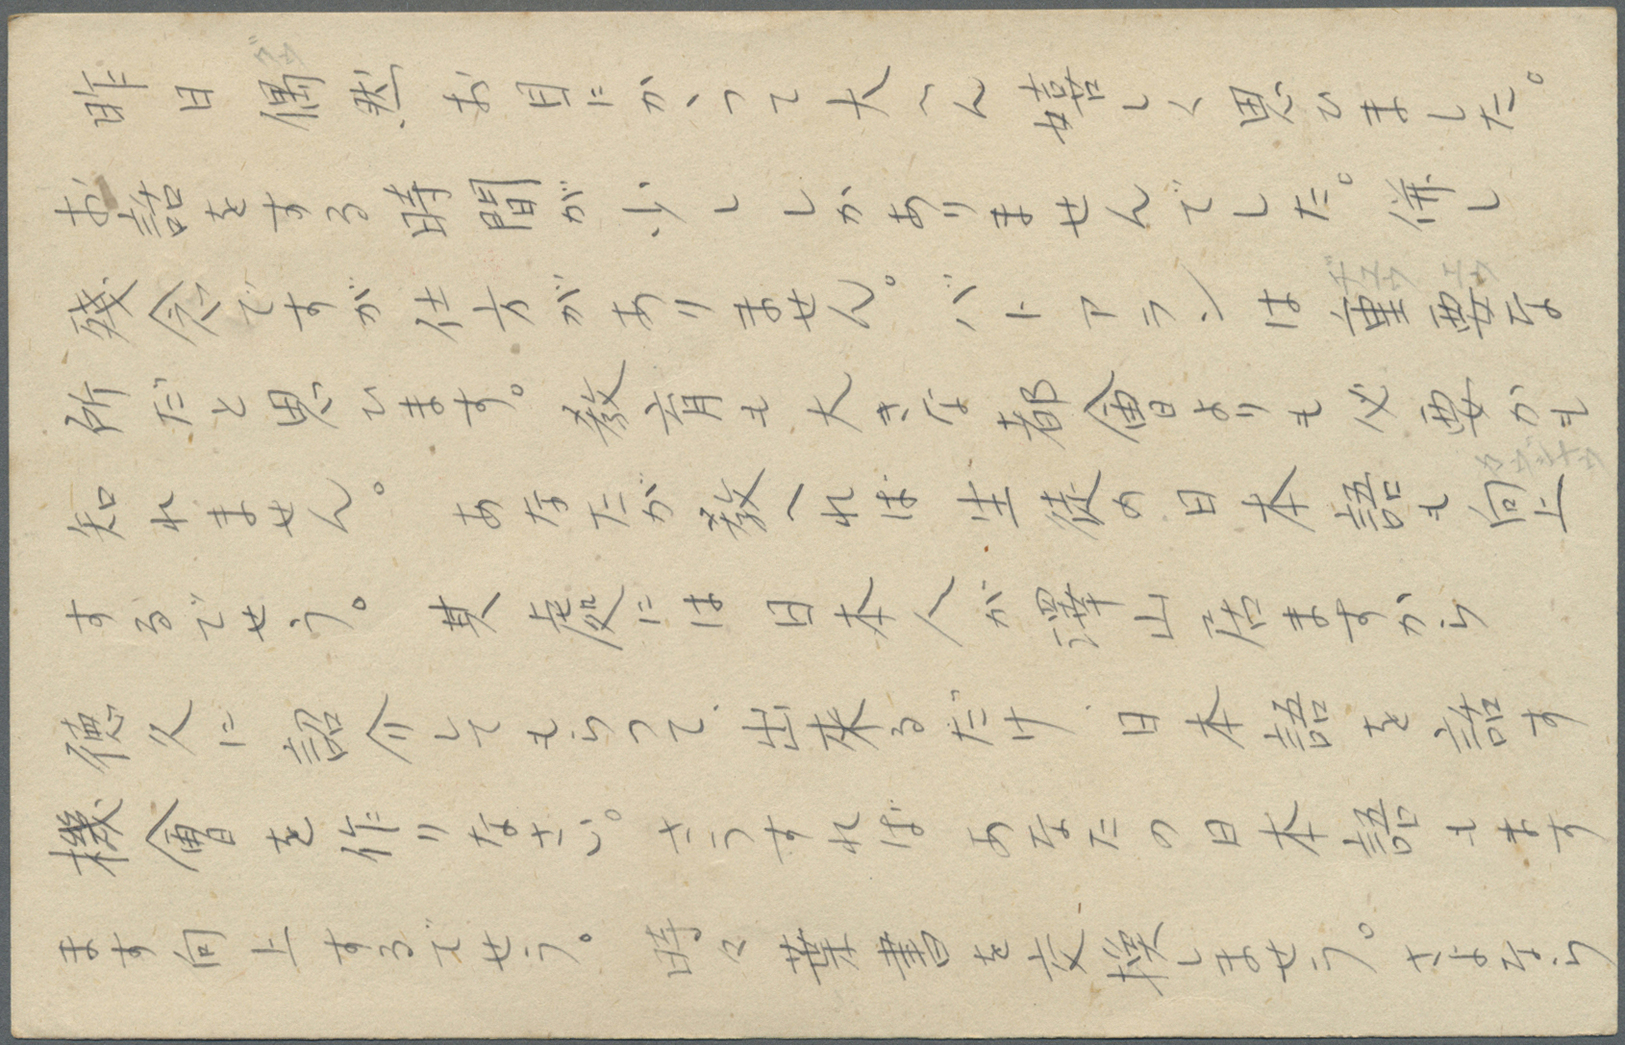 昨日偶然お目にかゝつて大へん嬉しく思ひました。
お話をする時間が少ししかありませんでした。併し
残念ですが仕方がありません。バトアランは重要な
所だと思ひます。教育も大きな都會よりも必要かも
知れません。あなたが教へれば生徒の日本語も向上
するでせう。其處には日本人が澤山居ますから
徳久に紹介してもらつて、出来るだけ、日本語を話す
機會を作りなさい。さうすればあなたの日本語もます
ます向上するでせう。時々葉書を交換しませう。さよなら